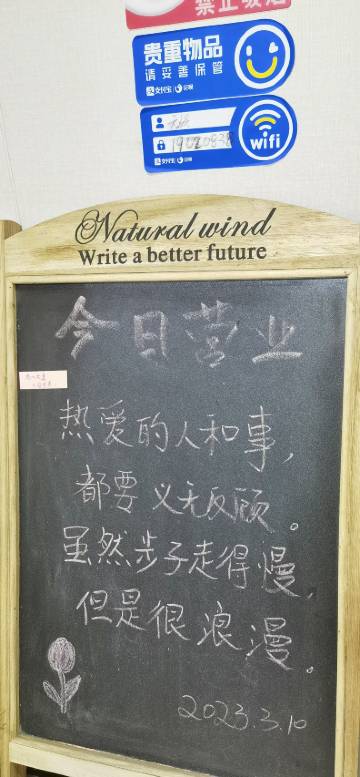 禁止吸烟
贵重物品
请妥善保管
支付宝
wifi
支付宝
Natural wind
Write a better future
今日营业
热爱的人和事,
都要义无反顾。
虽然步子走得慢,
但是很浪漫。
2023.3.10